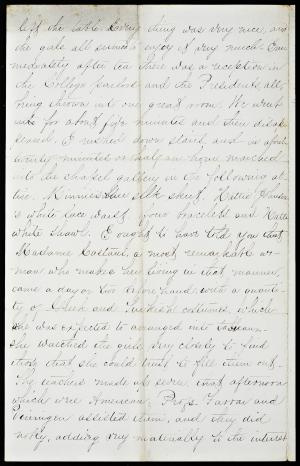 left the table. Every thing was very nice, and
the gals all seemed to enjoy it very much. Im
mediately after tea there was a reception in
the College parlors and the Presidents, all
being thrown into one great room. We went
into for about five minutes and then disap
peared. I rushed down stairs, and in about
twenty minutes or half an hour marched
into the chapel gallery in the following at
tire. Minnie's blue silk skirt, Hattie
's white lace waist, your bracelets and Hattie
white shawl. I ought to have told you that
Madame a most remarkable wo-
man who makes her living in that manner,
came a day or two before hand with a quanti-
ty of Greek and Turkish costumes, which
she was expected to arrange into tableaux.
She watched the girls very closely to find
those that she could trust to fill them out.
The teachers made up seven that afternoon
which were American. Profs. Farrar and
assisted them, and they did
nobly, adding very materially to the interest